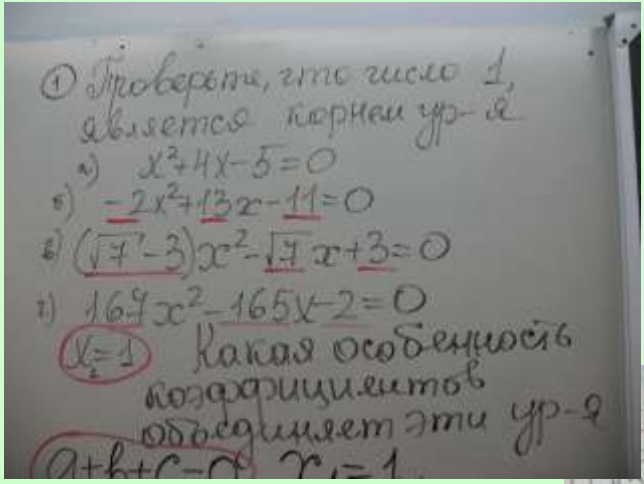 ① Проверьте, что число 1,
является корнем ур-я
а) x²+4x-5=0
б) -2x²+13x-11=0
в) (√7-3)x²-√7x+3=0
г) 167x²-165x-2=0
x₂=1 Какая особенность
коэффициентов
объединяет эти ур-я
a+b+c=0 x₁=1